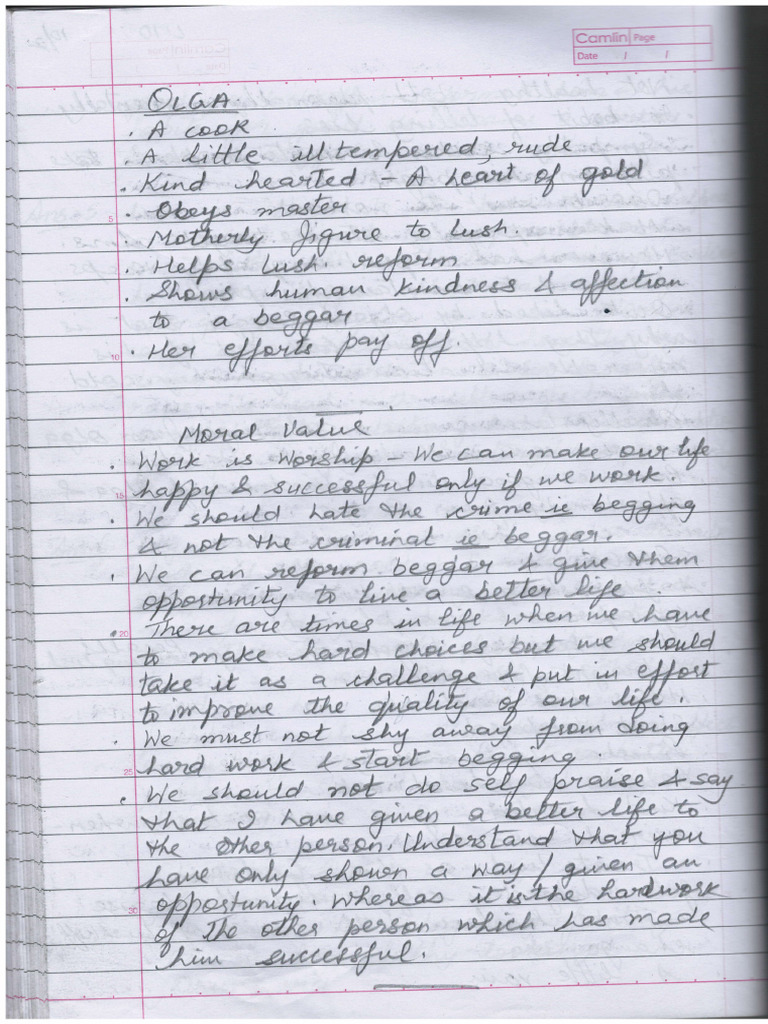 Camlin Page
Date / /
OLGA
. A cook
. A little ill tempered, rude
. Kind hearted - A heart of gold
. Obeys master
. Motherly figure to Lush.
. Helps Lush reform
. Shows human kindness & affection
to a beggar
. Her efforts pay off.
Moral Value
. Work is worship - We can make our life
happy & successful only if we work.
. We should hate the crime ie begging
& not the criminal ie beggar.
. We can reform beggar & give them
opportunity to live a better life.
. There are times in life when we have
to make hard choices but we should
take it as a challenge & put in effort
to improve the quality of our life.
. We must not shy away from doing
hard work & start begging.
. We should not do self praise & say
that I have given a better life to
the other person. Understand that you
have only shown a way / given an
opportunity. Whereas it is the hardwork
of the other person which has made
him successful.
5
10
15
20
25
30